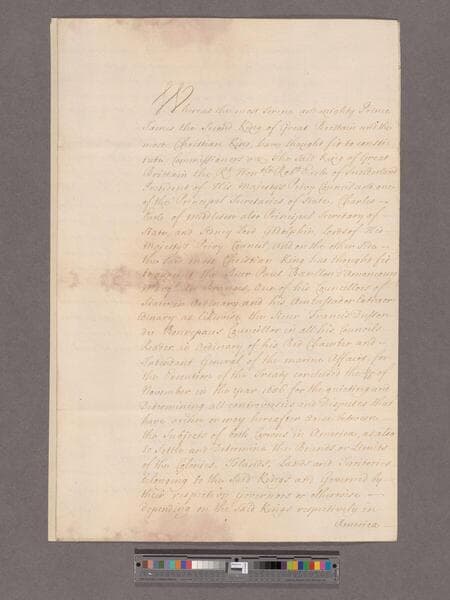 Whereas the most Serene and mighty Prince
James the Second King of Great Brittain and the
most Christian King have thought fit to consti
tute Commissioners viz. The said King of Great
Brittain the Rt. Honble. Robt. Earle of Sunderland
President of His Majesties Privy Council and one
of the Principal Secretaries of State, Charles
Earle of Midleton also Principal Secretary of
State, and Sidney Lord Godolphin Lords of His
Majesties Privy Council, And on the other side
the said most Christian King has thought fit
to appoint the Sieur Paul Barillon d'Amoncourt
Marquis de Branges, One of his Councellors of
State in Ordinary and his Ambassador Extraor
dinary as likewise the Sieur Francis Dusson
de Bonrepaus Councellor in all his Councils
Reader in Ordinary of his Bed Chamber and
Intendant General of the marine Affairs, for
the Execution of the Treaty concluded the
November in the year 1686 for the quieting and
Determining all controversies and Disputes that
have arisen or may hereafter arise between
the Subjects of both Crowns in America, as also
to Settle and Determine the Bounds or Limits
of the Colonies, Islands, Lands and Territories
belonging to the said Kings and Governed by
their respective Governors or otherwise
depending on the said Kings respectively in
America